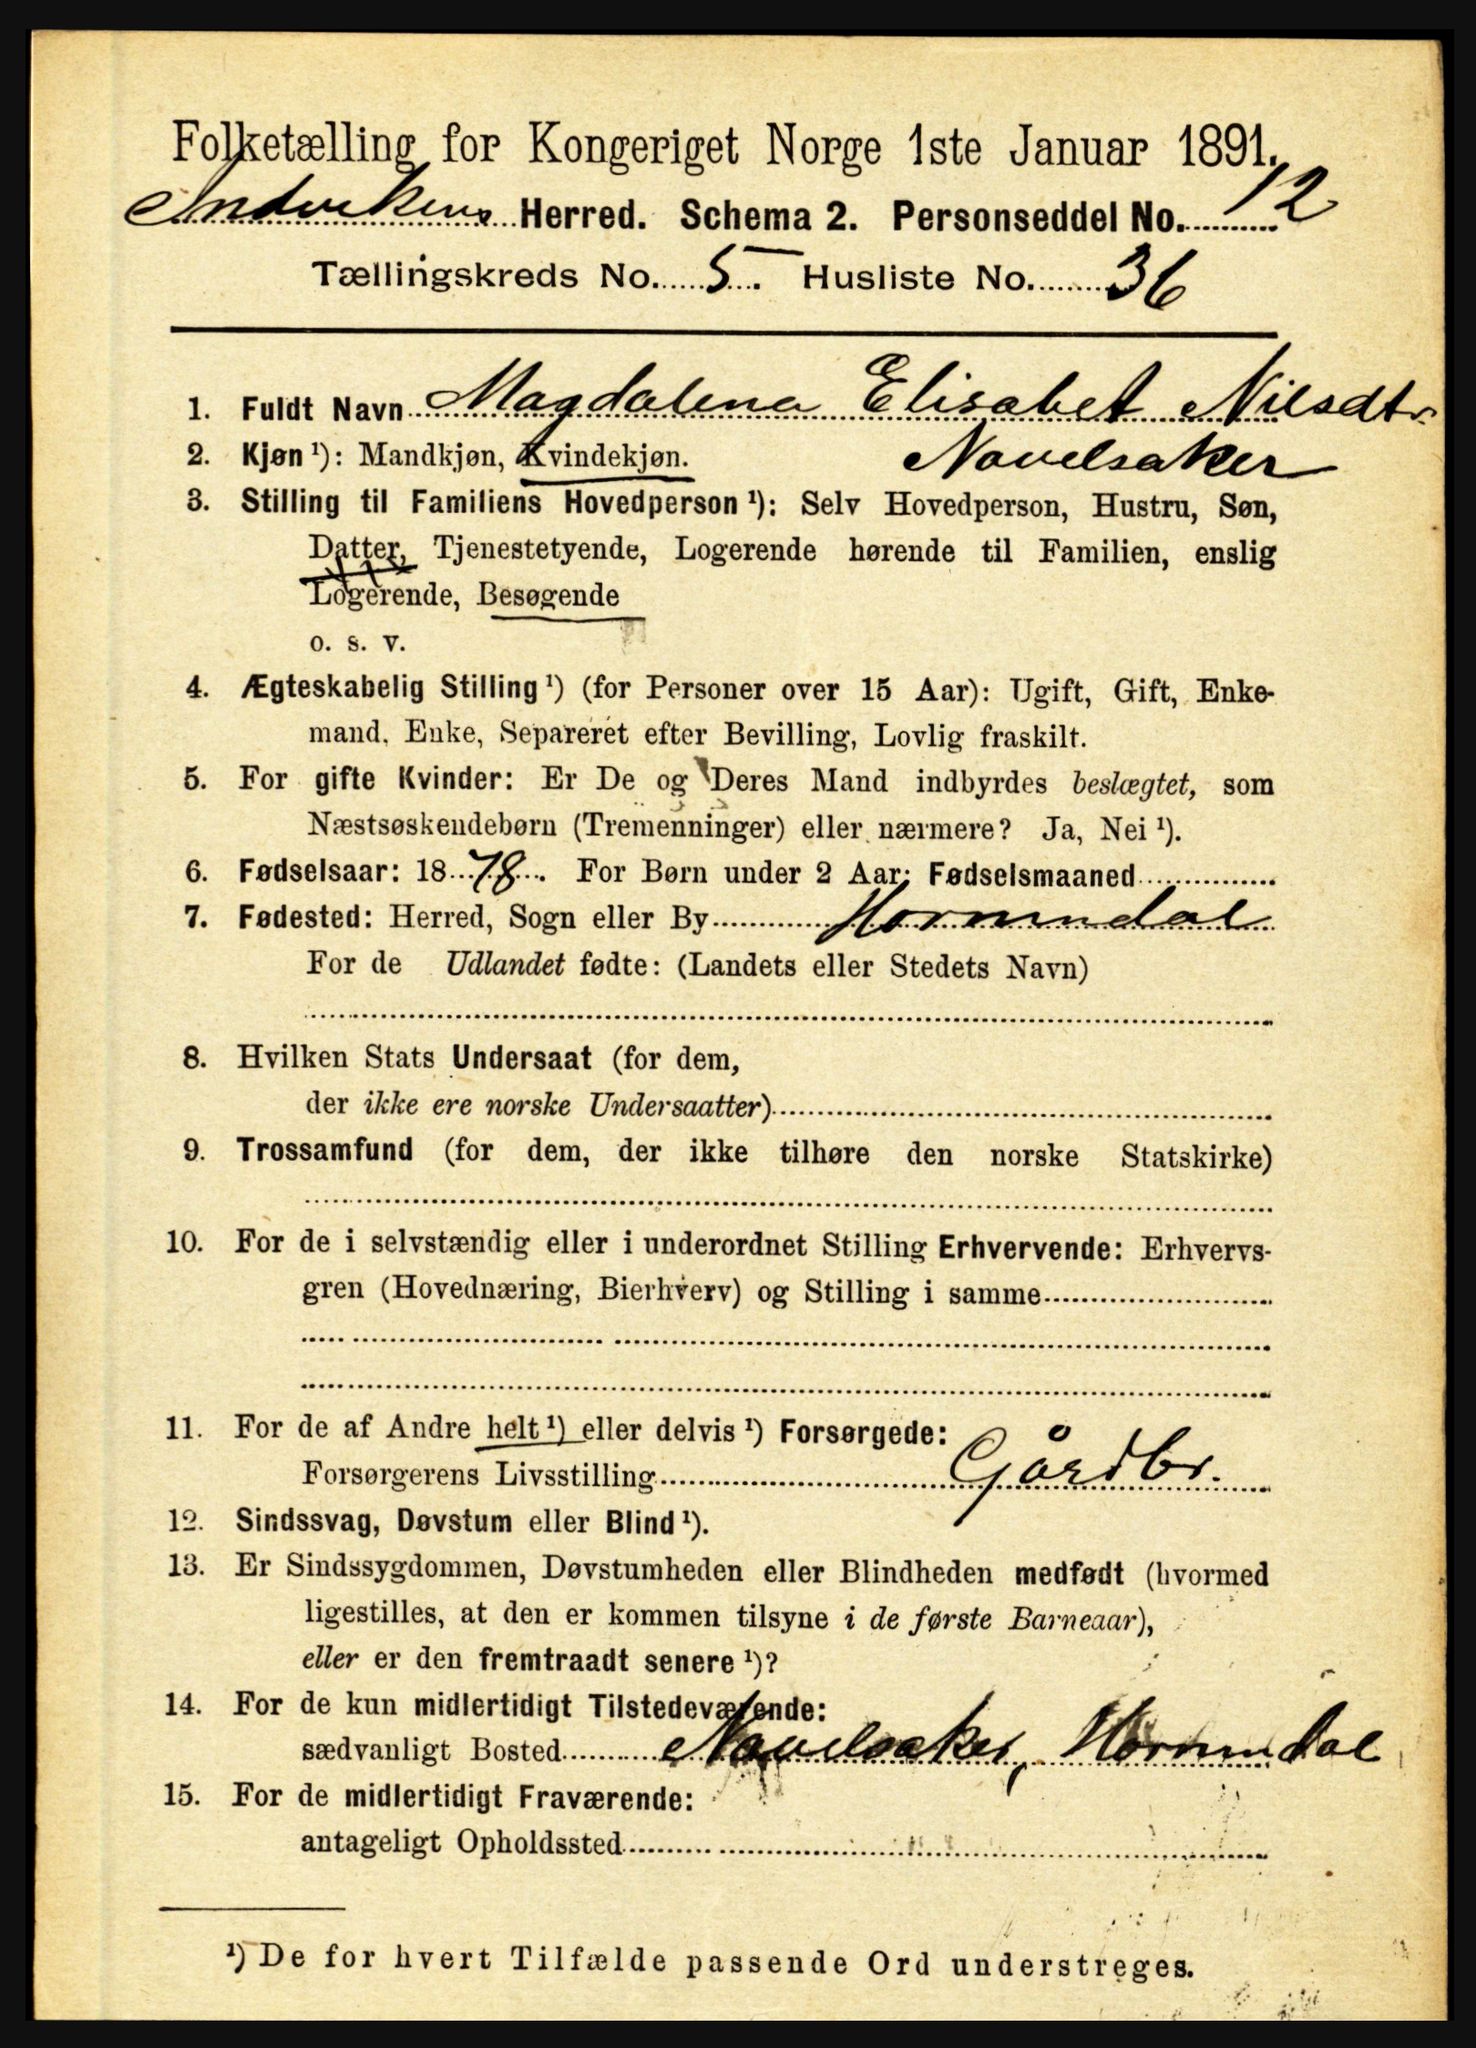 Folketælling for Kongeriget Norge 1ste Januar 1891.
Indvikens Herred. Schema 2. Personseddel No. 12
Tællingskreds No. 5 Husliste No. 36
1. Fuldt Navn Magdalena Elisabet Nilsdtr.
2. Kjøn ¹): Mandkjøn, Kvindekjøn. Navelsaker
3. Stilling til Familiens Hovedperson ¹): Selv Hovedperson, Hustru, Søn,
Datter, Tjenestetyende, Logerende hørende til Familien, enslig
Logerende, Besøgende
o. s. v.
4. Ægteskabelig Stilling ¹) (for Personer over 15 Aar): Ugift, Gift, Enke-
mand, Enke, Separeret efter Bevilling, Lovlig fraskilt.
5. For gifte Kvinder: Er De og Deres Mand indbyrdes beslægtet, som
Næstsøskendebørn (Tremenninger) eller nærmere? Ja, Nei ¹).
6. Fødselsaar: 1878. For Børn under 2 Aar: Fødselsmaaned
7. Fødested: Herred, Sogn eller By Hornindal
For de Udlandet fødte: (Landets eller Stedets Navn)
8. Hvilken Stats Undersaat (for dem,
der ikke ere norske Undersaatter)
9. Trossamfund (for dem, der ikke tilhøre den norske Statskirke)
10. For de i selvstændig eller i underordnet Stilling Erhvervende: Erhvervs-
gren (Hovednæring, Bierhverv) og Stilling i samme
11. For de af Andre helt ¹) eller delvis ¹) Forsørgede:
Forsørgerens Livsstilling Gårdbr.
12. Sindssvag, Døvstum eller Blind ¹).
13. Er Sindssygdommen, Døvstumheden eller Blindheden medfødt (hvormed
ligestilles, at den er kommen tilsyne i de første Barneaar),
eller er den fremtraadt senere ¹)?
14. For de kun midlertidigt Tilstedeværende:
sædvanligt Bosted Navelsaker, Hornindal
15. For de midlertidigt Fraværende:
antageligt Opholdssted
¹) De for hvert Tilfælde passende Ord understreges.